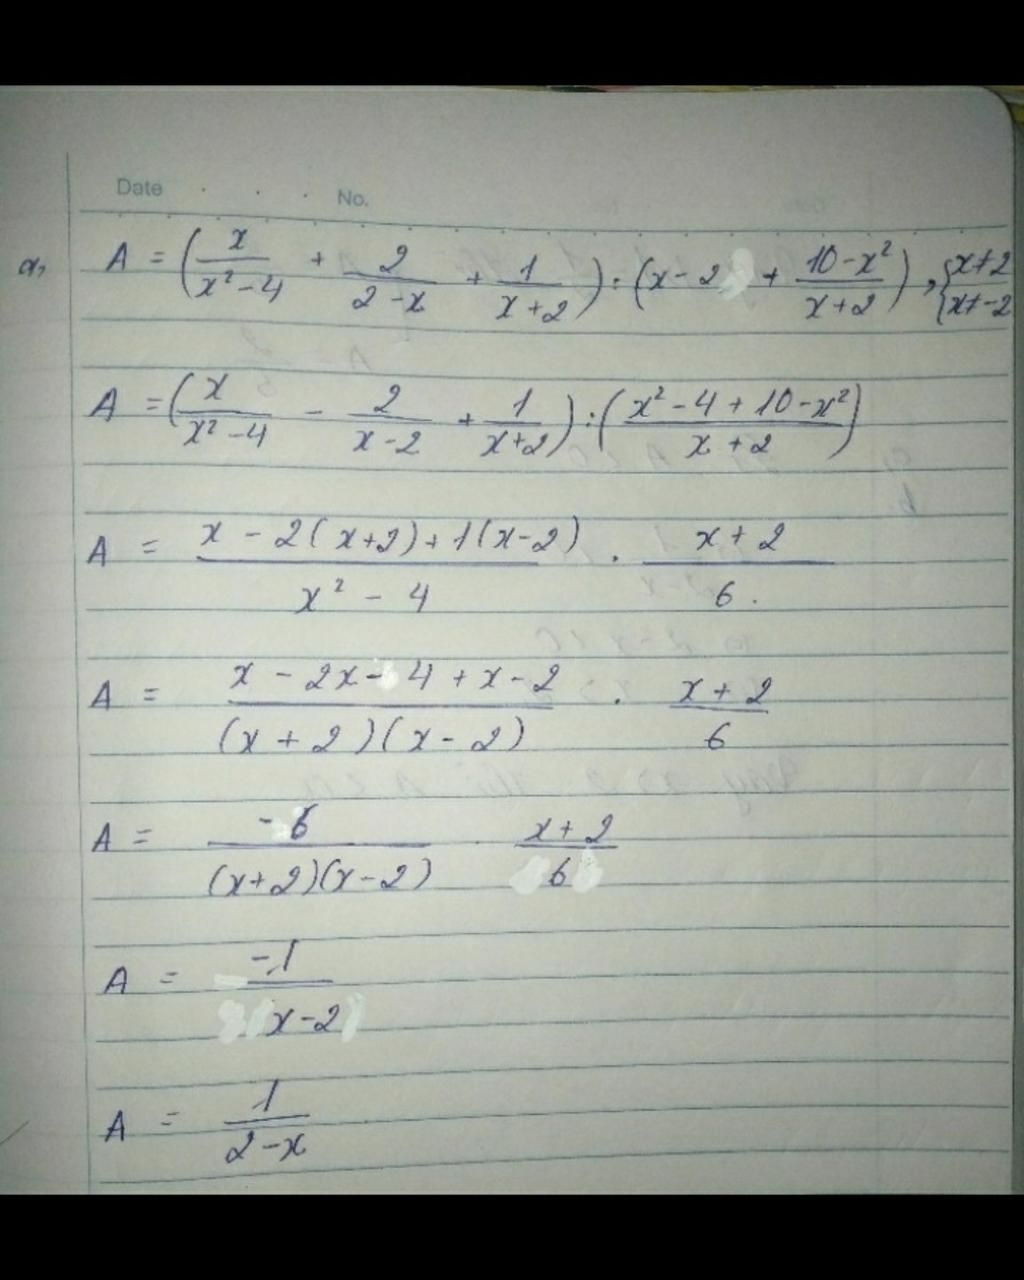 Date No.
a, A = (x/(x² - 4) + 2/(2 - x) + 1/(x + 2)) : (x - 2 + (10 - x²)/(x + 2)), {x ≠ 2 x ≠ -2
A = (x/(x² - 4) - 2/(x - 2) + 1/(x + 2)) : ((x² - 4 + 10 - x²)/(x + 2))
A = (x - 2(x+2) + 1(x-2))/(x² - 4) . (x + 2)/6.
A = (x - 2x - 4 + x - 2)/((x + 2)(x - 2)) . (x + 2)/6
A = -6/((x+2)(x-2)) . (x + 2)/6
A = -1/(x - 2)
A = 1/(2 - x)